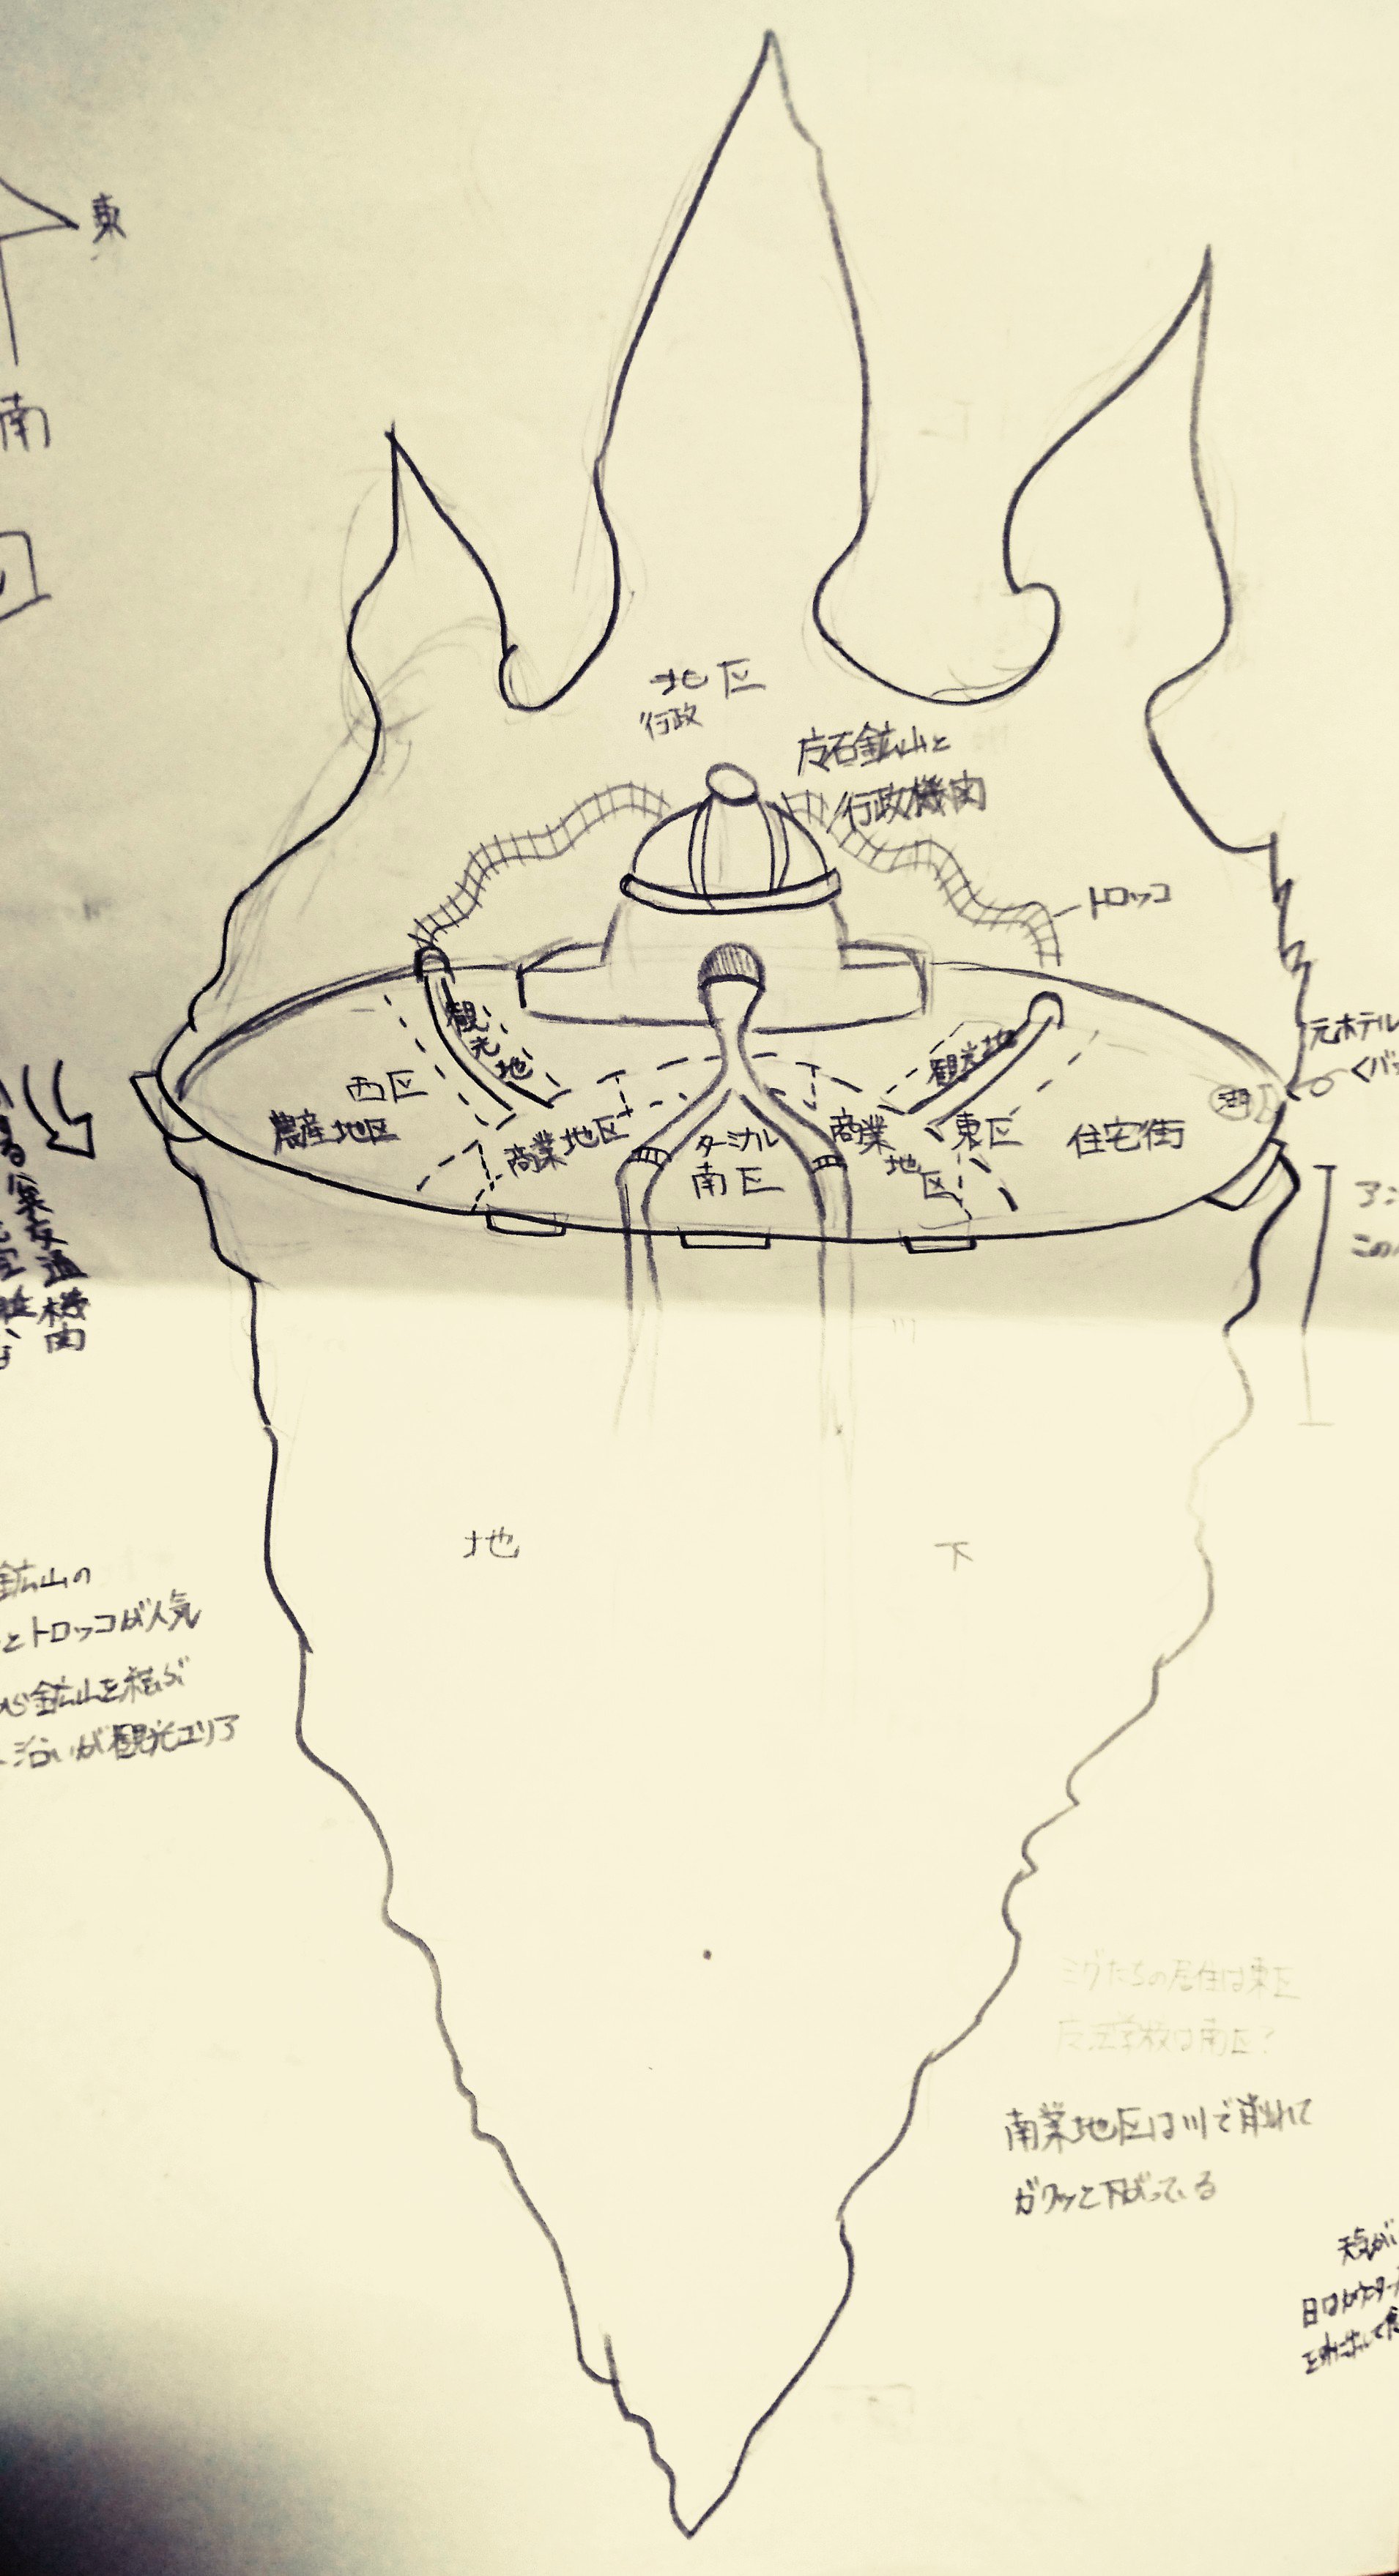 東
南
北区
行政
石鉱山と
行政機関
トロッコ
観光地
観光地
西区
農産地区
商業地区
ターミナル
南区
商業
地区
東区
住宅街
湖
元ホテル
公共交通機関
川
地下
鉱山の
とトロッコが人気
鉱山を結ぶ
沿いが観光エリア
ミグたちの居住は東区
学校は南区?
商業地区は川で削れて
ガクッと下がっている
天気が